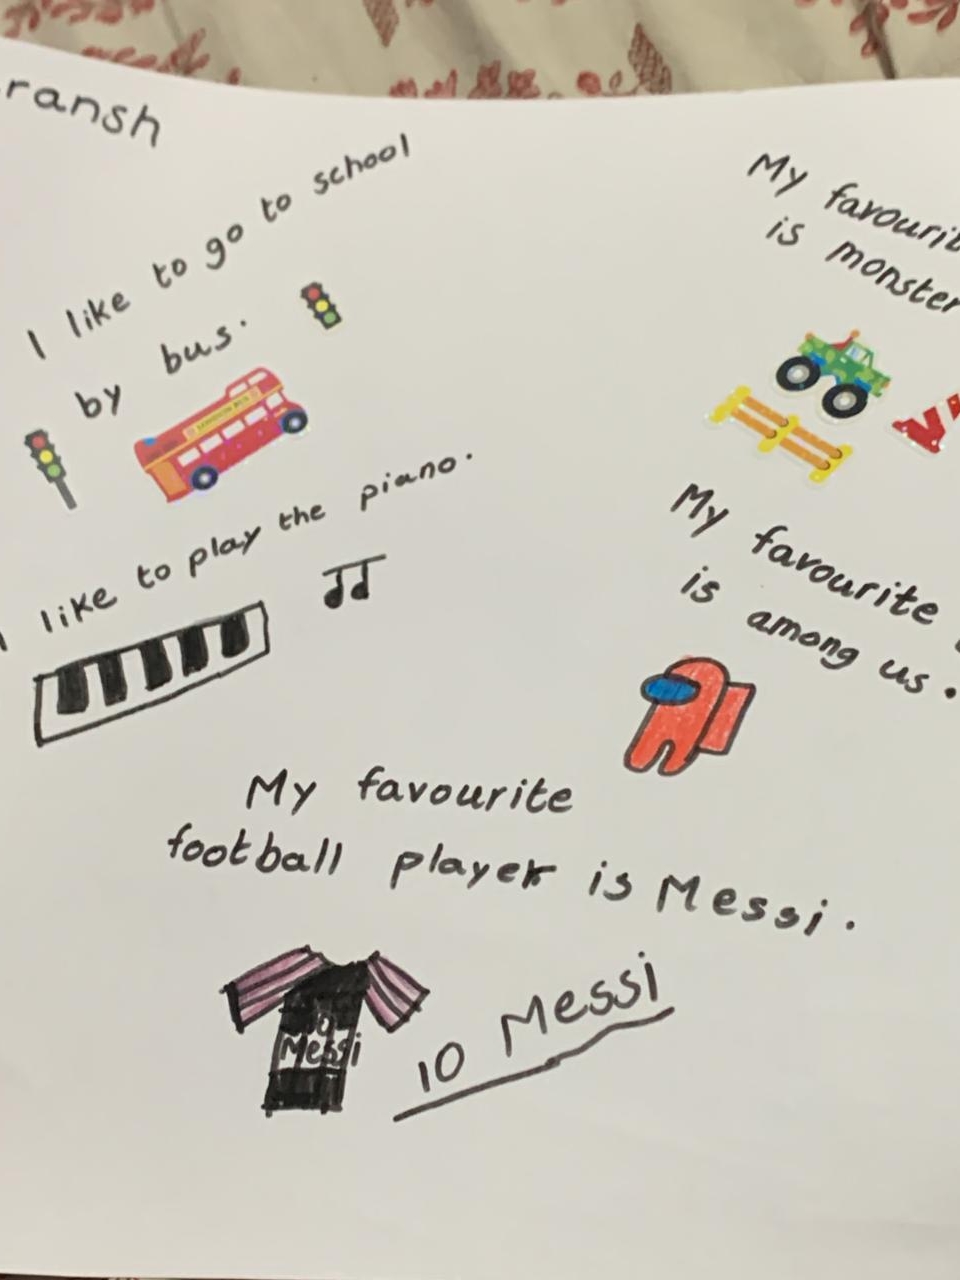 ransh
I like to go to school
by bus.
LONDON BUS
I like to play the piano.
My
is monster
My favourite
is among us.
My favourite
football player is Messi.
10
Messi
10 Messi